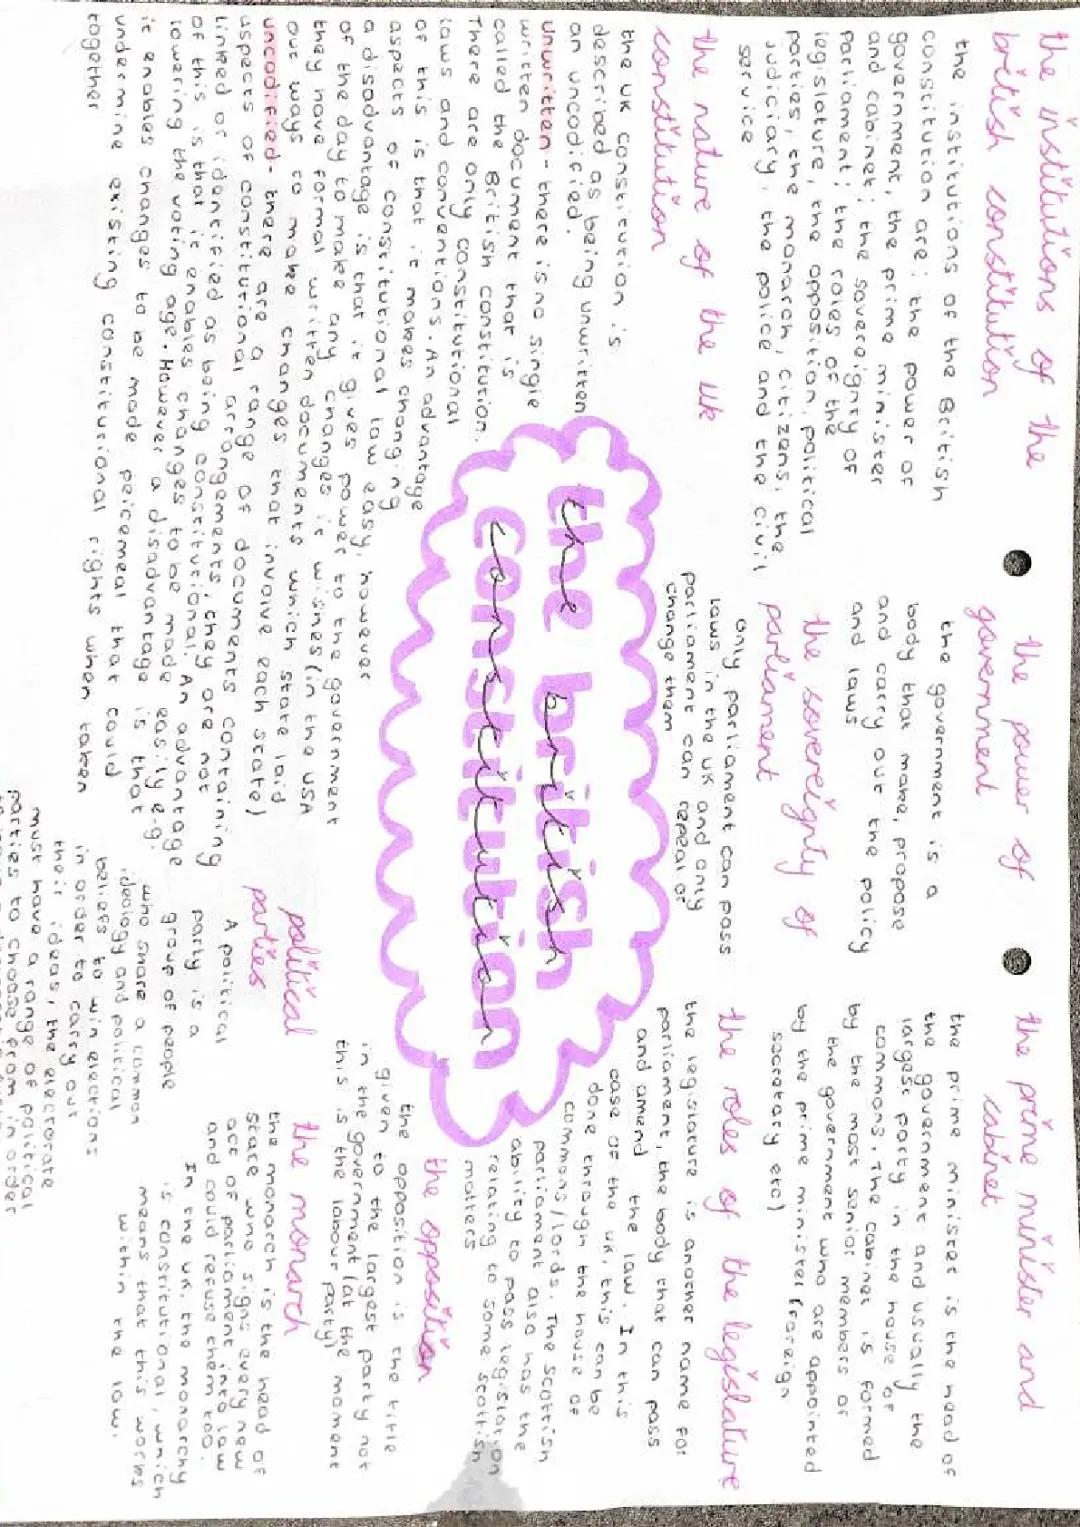 the institutions of the
british constitution
the institutions of the British
constitution are: the power of
government, the prime minister
and cabinet; the sovereignty of
parliament; the roles of the
legislature, the opposition, political
parties, the monarch, citizens, the
judiciary, the police and the civil
service
the nature of the uk
constitution
the UK constitution is
described as being unwritten
an uncodified.
unwritten - there is no single
written document that is
called the British constitution.
There are only constitutional
laws and conventions. An advantage
of this is that it makes changing
aspects of constitutional law easy, however
a disadvantage is that it gives power to the government
of the day to make any changes it wishes (in the USA
they have formal written documents which state laid
out ways to make changes that involve each state)
uncodified - there are a range of documents containing
aspects of constitutional arrangements, they are not
linked or identified as being constitutional. An advantage
of this is that it enables changes to be made easily e.g.
lowering the voting age. However a disadvantage is that
it enables changes to be made peicemeal that could
undermine existing constitutional rights when taken
together
the british
constitution
the british
constitution
the power of
government
the government is a
body that make, propose
and carry out the policy
and laws
the sovereignty of
parliament
only parliament can pass
laws in the UK and only
parliament can repeal or
change them
political
parties
A political
party is a
group of people
who share a common
ideology and political
beliefs
to win elections
in order to carry out
their ideas, the electorate
must have a range of political
parties to choose from in order
the prime minister and
cabinet
the prime minister is the head of
the government and usually the
largest party in the house of
commons. The cabinet is formed
by the most senior members of
the government who are appointed
by the prime minister (foreign
secretary etc)
the roles of the legislature
the legislature is another name for
parliament, the body that can pass
and amend the law. In this
case of the UK, this can be
done through the house of
commons/lords. The Scottish
parliament also has the
ability to pass legislation
relating to some scottish
matters
the opposition
the opposition is the title
given to the largest party not
in the government (at the moment
this is the labour party)
the monarch
the monarch is the head of
state who signs every new
act of parliament into law
and could refuse them too.
In the UK, the monarchy
is constitutional, which
means that this works
within the law.